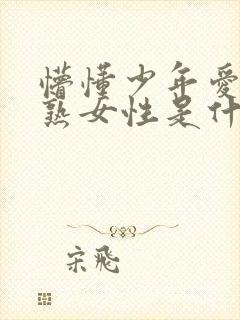 懵懂少年爱
熟女性是什
宋飛